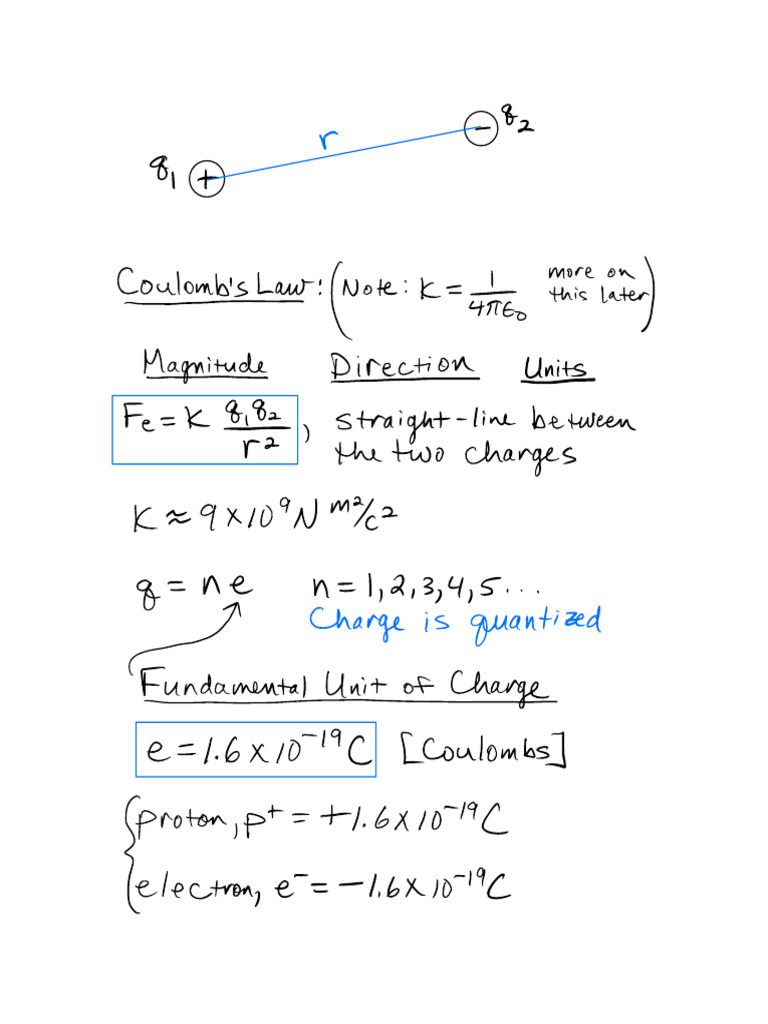 r
q₂
q₁ +
−
Coulomb's Law: (Note: K = 1/(4πε₀) more on this later)
Magnitude Direction Units
Fₑ = K q₁q₂/r², straight-line between
the two charges
K ≈ 9×10⁹ N m²/C²
q = n e n = 1, 2, 3, 4, 5...
Charge is quantized
Fundamental Unit of Charge
e = 1.6 × 10⁻¹⁹ C [Coulombs]
proton, p⁺ = +1.6 × 10⁻¹⁹ C
electron, e⁻ = −1.6 × 10⁻¹⁹ C